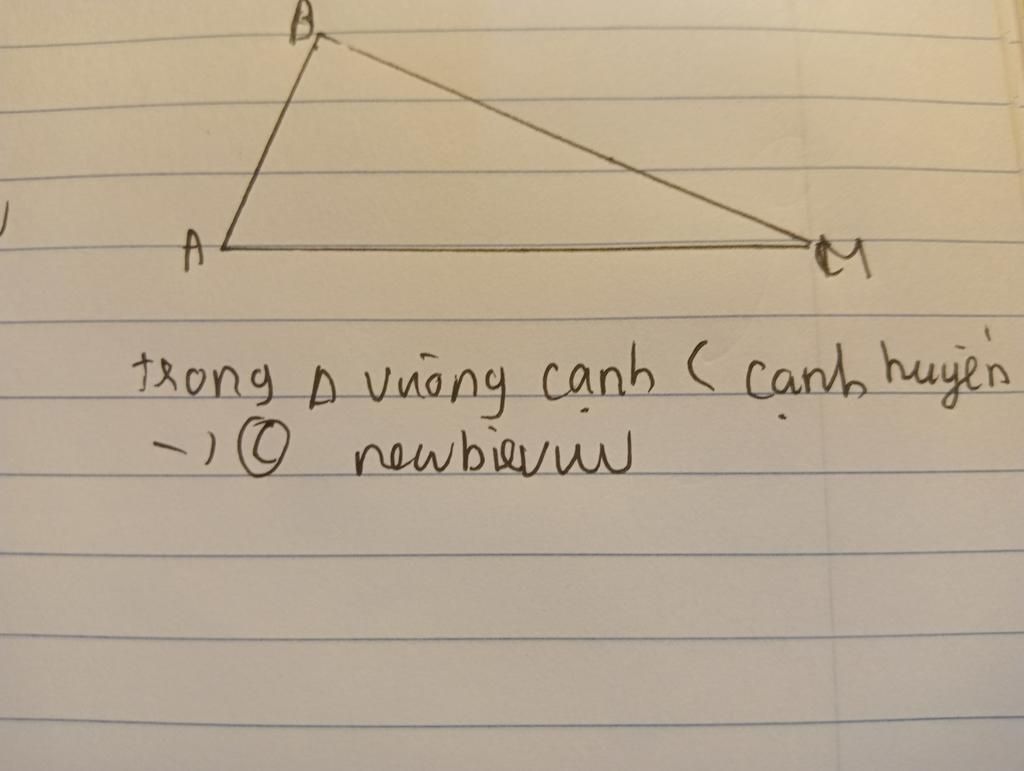 B
A
M
trong Δ vuông cạnh < cạnh huyền
→ Ⓒ newbievuw